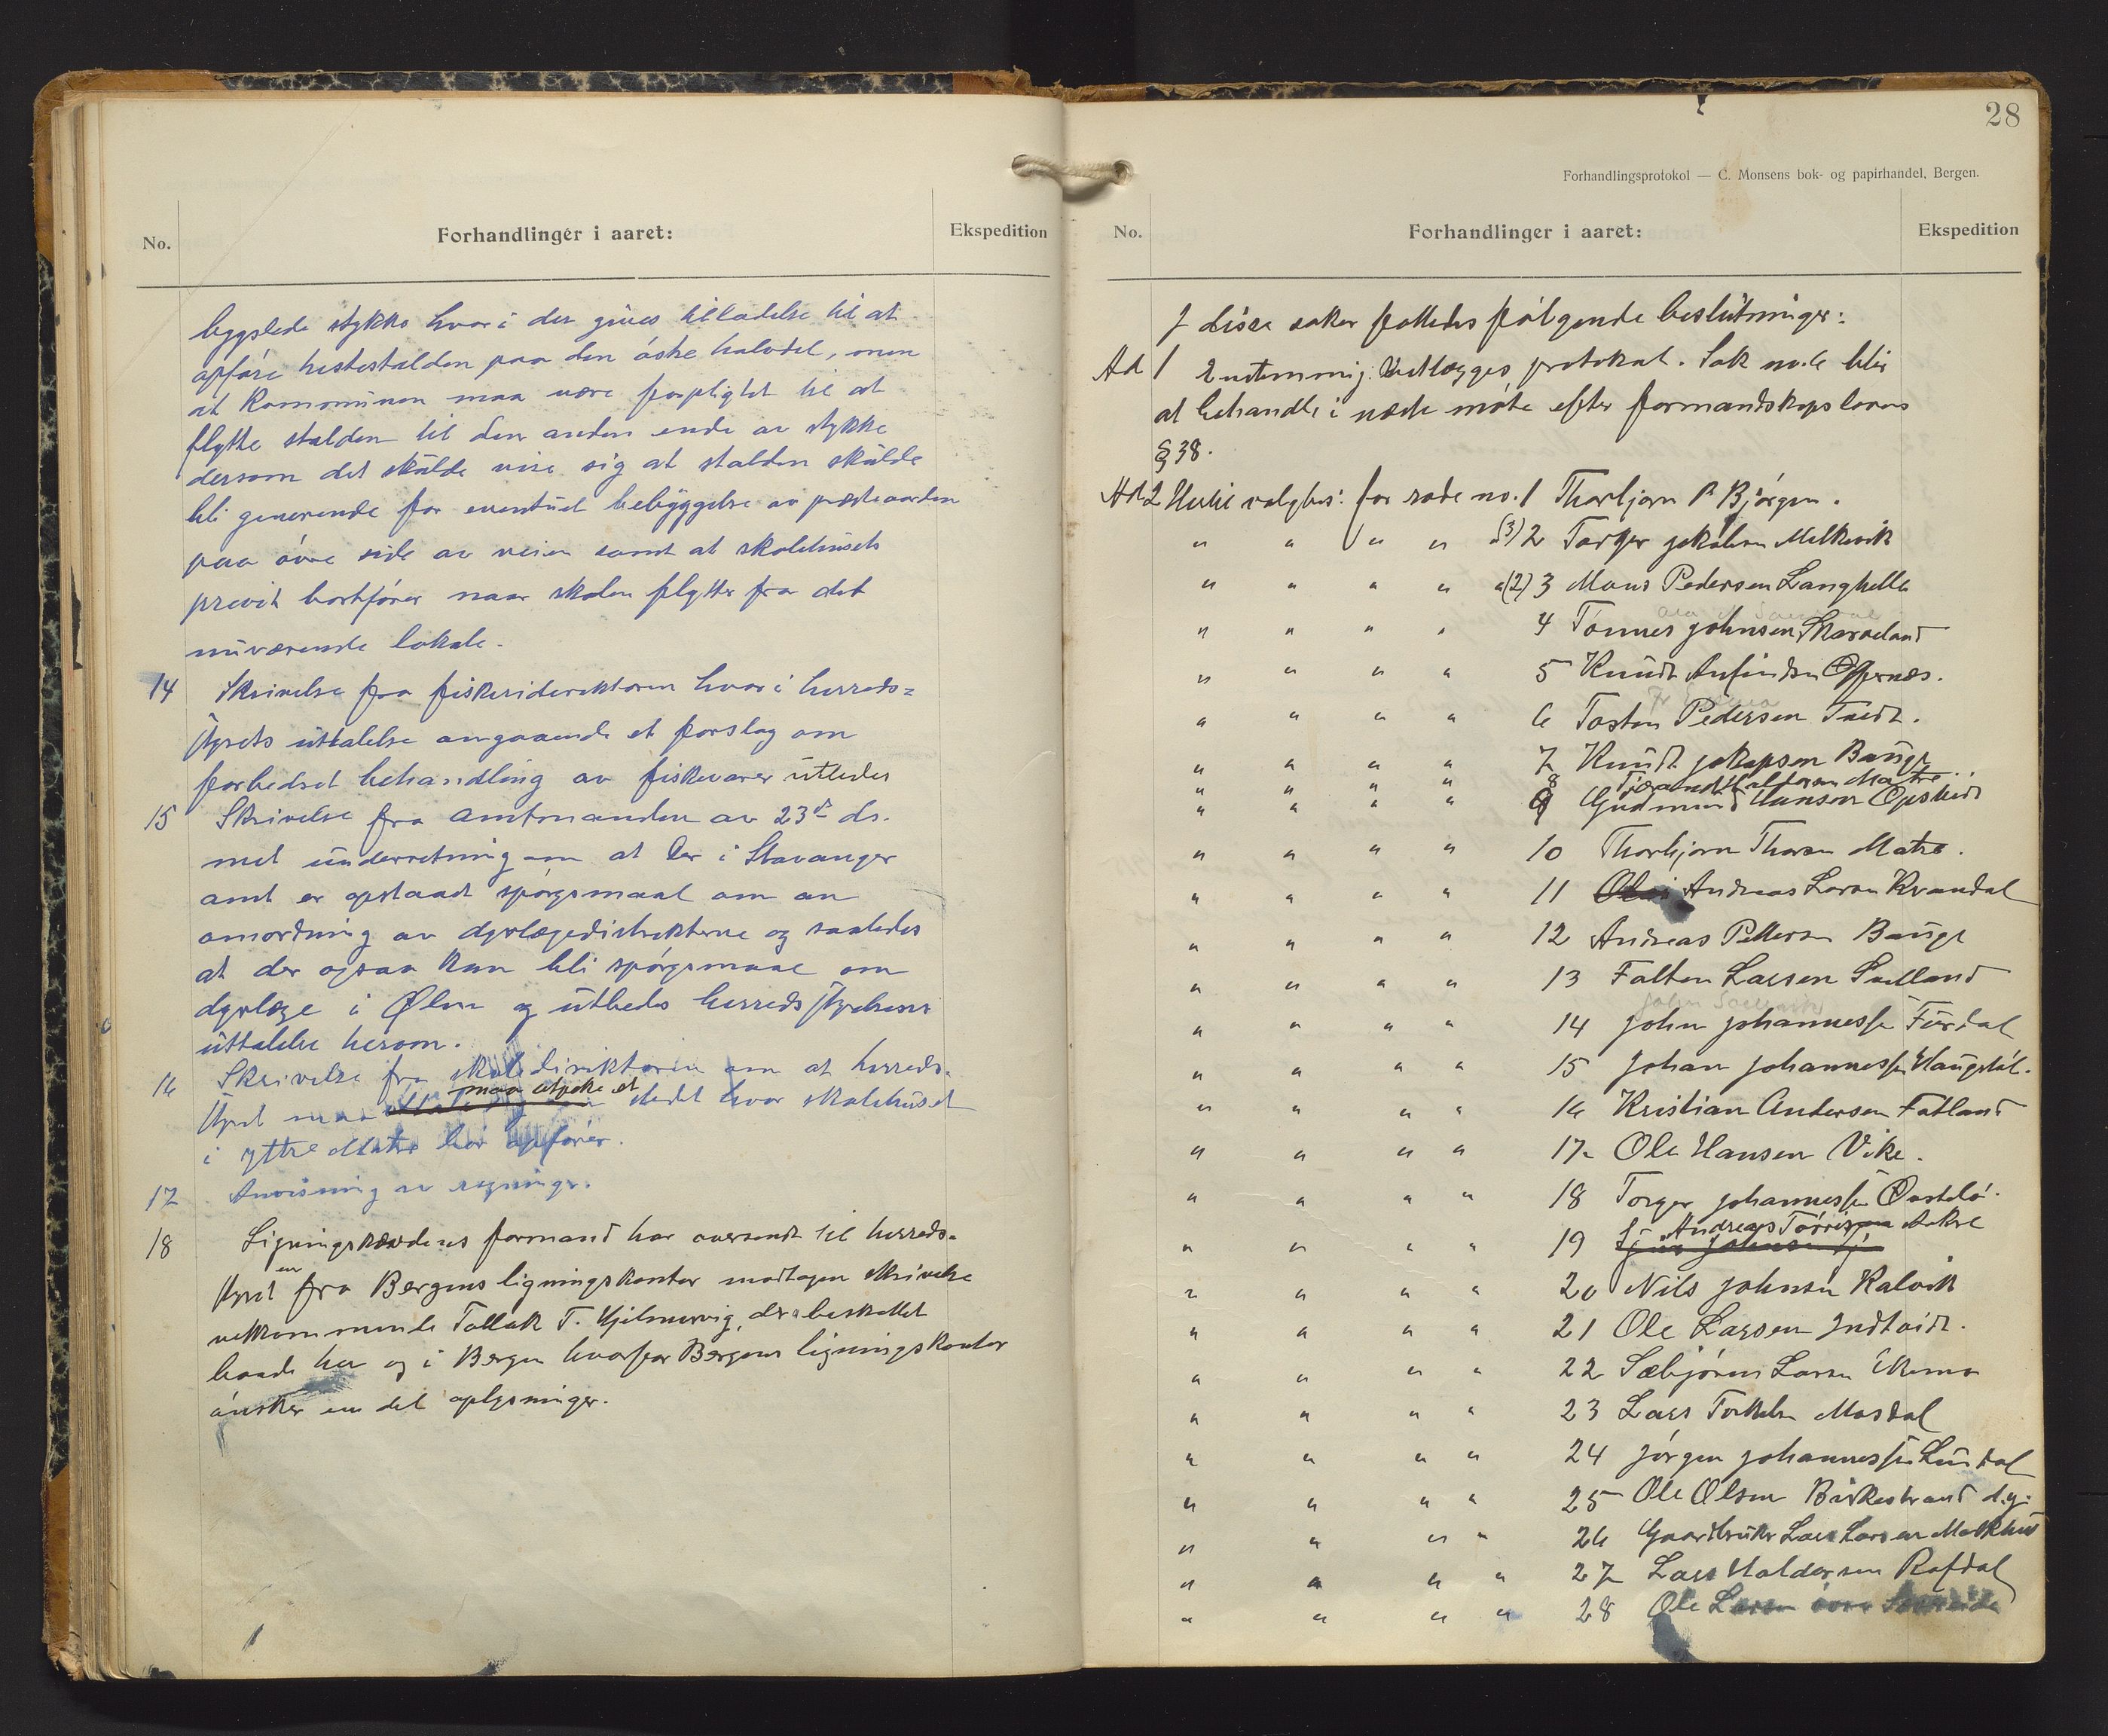 No.
Forhandlinger i aaret:
Ekspedition
byggslede stykke hvori der gives tilladelse til at
opføre hestestalden paa den østre halvdel, men
at Kommunen maa være forpligtet til at
flytte stalden til den anden ende av stykke
dersom det skulde vise sig at stalden skulde
bli generende for eventuel bebyggelse av præstegarden
paa øvre side av veien samt at skolehusets
privit bortfører naar skolen flytter fra det
nuværende lokale.
14 Skrivelse fra fiskeridirektøren hvori herreds=
styrets uttalelse angaaende et forslag om
forbedret behandling av fiskevarer utbedes
15 Skrivelse fra amtmanden av 23de ds.
med underretning om at der i Stavanger
amt er opstaat spørgsmaal om en
omordning av dyrlægedistrikterne og saaledes
at der ogsaa kan bli spørgsmaal om
dyrlæge i Ølen og utbedes herredsstyrelsens
uttalelse herom.
16 Skrivelse fra skoledirektøren om at herreds-
styret maa utpeke et stedet hvor skolehuset
i yttre Matre bør opføres.
17 Anvisning av regninger.
18 Ligningsraadenes formand har oversendt til herreds=
styret en fra Bergens ligningskontor modtagen skrivelse
vedkommende Tollak T. Hjelmervig, der beskattet
baade her og i Bergen hvorfor Bergens ligningskontor
ønsker en del oplysninger.
28
Forhandlingsprotokol — C. Monsens bok- og papirhandel, Bergen.
No.
Forhandlinger i aaret:
Ekspedition
I disse saker fattedes følgende beslutninger:
Ad 1 Enstemmig: Vedlægges protokol. Sak no. 6 blir
at behandle i næste møte efter formandskapslovens
§ 38.
Ad 2 Hertil valgtes: for rode no. 1 Thorbjørn P Bjørgen.
" " " " (3) 2 Torger Jakobsen Milkevik
" " " " (2) 3 Mons Pedersen Langhelle
" " " " 4 Tønnes Johnsen Skarveland
" " " " 5 Knudt Anfindsen Opernæs.
" " " " 6 Tosten Pedersen Tvedt.
" " " " 7 Knudt Jakopsen Bauge
" " " " 8 Tjerand Matre
" " " " 9 Gudmund Hansen Opsheid
" " " " 10 Thorbjørn Thorsen Matre.
" " " " 11 Andreas Larsen Kvandal
" " " " 12 Andreas Pettersen Bauge
" " " " 13 Falten Larsen Sætland
" " " " 14 John Johannessen Furdal
" " " " 15 Johan Johannessen Haugstøl.
" " " " 16 Kristian Andersen Fatland
" " " " 17 Ole Hansen Vike.
" " " " 18 Torger Johannessen Øvstebø.
" " " " 19 Andreas Tørrisen Aakre
" " " " 20 Nils Johnsen Kalvik
" " " " 21 Ole Larsen Indtvidt.
" " " " 22 Sæbjørn Larsen
" " " " 23 Lars Torkelsen Mosdal
" " " " 24 Jørgen Johannessen Lundal
" " " " 25 Ole Olsen Birkestrand d.y.
" " " " 26 Gaardbruker Lars Larsen Molkhus
" " " " 27 Lars Haldorsen Rafdal
" " " " 28 Ole Larsen øvre